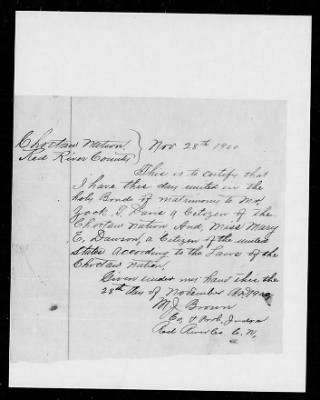 Choctaw Nation,
Red River County } Nov 28th 1900
This is to certify that
I have this day united in the
holy Bonds of matrimony to Mr
Zack T. Davis a Citozen of the
Choctaw Nation And, Miss Mary
E, Dawson, a Citozen of the united
States according to the Laws of the
Choctaw Nation,
Given under my hand this the
28th day of November AD 1900
M J Brown
Co, & Prob, Judge
Red River Co, C. N,